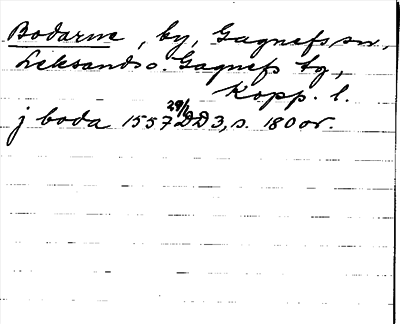 Bodarne, by, Gagnefs sn,
Leksands o. Gagnefs tg,
Kopp. l.
j boda 1557 29/1 DD3, s. 180 or.